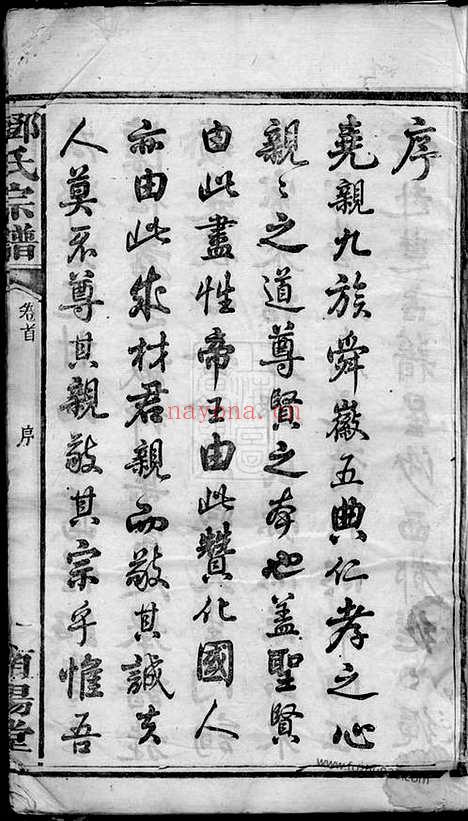 序
堯親九族舜徽五典仁孝之心
親〻之道尊賢之本也蓋聖賢
由此盡性帝王由此贊化國人
亦由此成材君親而敬其誠矣
人莫不尊其親敬其宗乎惟吾
鄧氏宗譜
卷首
序
一
南陽堂
nayona.cn